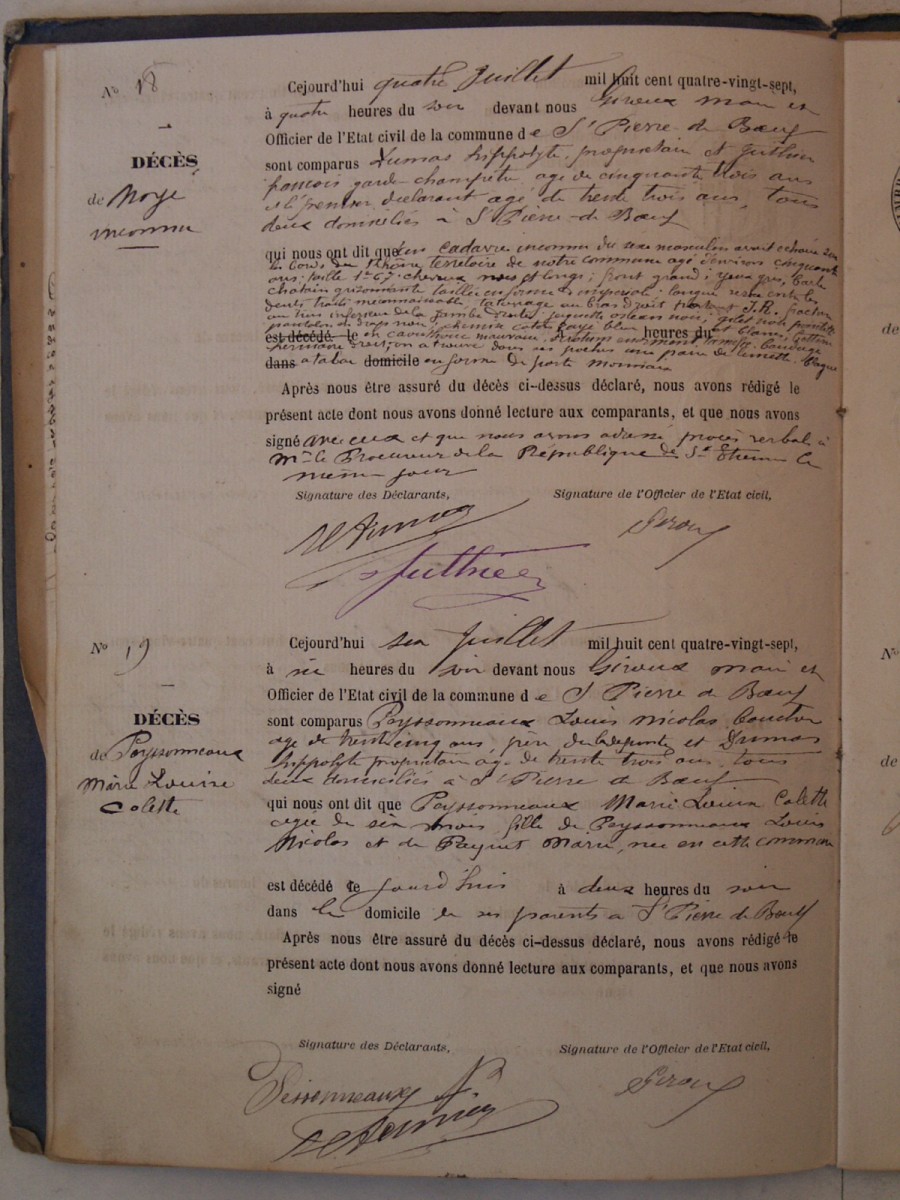 No 18
DÉCÈS
de Noyé
inconnu
Cejourd'hui quatre Juillet mil huit cent quatre-vingt-sept,
à quatre heures du soir devant nous Giroux maire et
Officier de l'Etat civil de la commune de St Pierre de Bœuf
sont comparus Dumas hippolyte, propriétaire et Juthier
francois garde-champêtre, age de cinquante trois ans
et le premier déclarant age de trente trois ans, tous
deux domiciliés à St Pierre-de Bœuf
qui nous ont dit que un cadavre inconnu du sexe masculin avait échoué sur
les bords du Rhône territoire de notre commune agé d'environ cinquante
ans, taille 1m67, cheveux et longs; front grand; yeux gris, barbe
chatain grizonnante taillée en forme d'impériale
dents traits méconnaissable, tatouage au bras droit portant J.R. fracture
au tiers inférieur de la jambe droite; jaquette noir, gilet noir
pantalon de drap noir, chemise coton rayé bleu et blanc
est décédé le en caoutchouc mauvais, heures du bandage
herniaire droit, on a trouvé dans ses poches une paire de lunette, blague
dans a tabac domicile en forme de porte monnaie
Après nous être assuré du décès ci-dessus déclaré, nous avons rédigé le
présent acte dont nous avons donné lecture aux comparants, et que nous avons
signé avec eux et que nous avons adressé procès verbal à
Mr le Procureur de la République de St Etienne le
même jour
Signature des Déclarants, Signature de l'Officier de l'Etat civil,
Dumas Giroux
Juthier
No 19
DÉCÈS
de Peyssonneaux
Marie Louise
Colette
Cejourd'hui six Juillet mil huit cent quatre-vingt-sept,
à six heures du soir devant nous Giroux maire et
Officier de l'Etat civil de la commune de St Pierre de Bœuf
sont comparus Peyssonneaux Louis Nicolas
age de trente cinq ans, père de la défunte et Dumas
hippolyte propriétaire age de trente trois ans, tous
deux domiciliés à St Pierre de Bœuf
qui nous ont dit que Peyssonneaux Marie Louise Colette
agée de six mois, fille de Peyssonneaux Louis
Nicolas et de Marie, née en cette commune
est décédé le jourd'hui à deux heures du soir
dans le domicile de ses parents à St Pierre de Bœuf
Après nous être assuré du décès ci-dessus déclaré, nous avons rédigé le
présent acte dont nous avons donné lecture aux comparants, et que nous avons
signé
Signature des Déclarants, Signature de l'Officier de l'Etat civil,
Peissonneaux N Giroux
Dumas
No
de
de